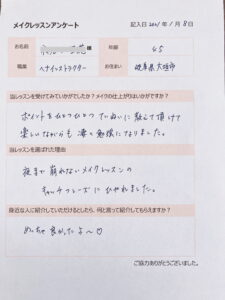 メイクレッスンアンケート
記入日 2021年 1月 8日
お名前 様
年齢 45
職業 ヘナインストラクター
お住まい 岐阜県大垣市
当レッスンを受けてみていかがでしたか?メイクの仕上がりはいかがですか?
ポイントをひとつひとつていねいに教えて頂けて
楽しいながらも凄く勉強になりました。
当レッスンを選ばれた理由
夜まで崩れないメイクレッスンの
キャッチフレーズにひかれました。
身近な人に紹介していただけるとしたら、何と言って紹介してもらえますか?
めっちゃ良かったよ〜♡
ご協力ありがとうございました。